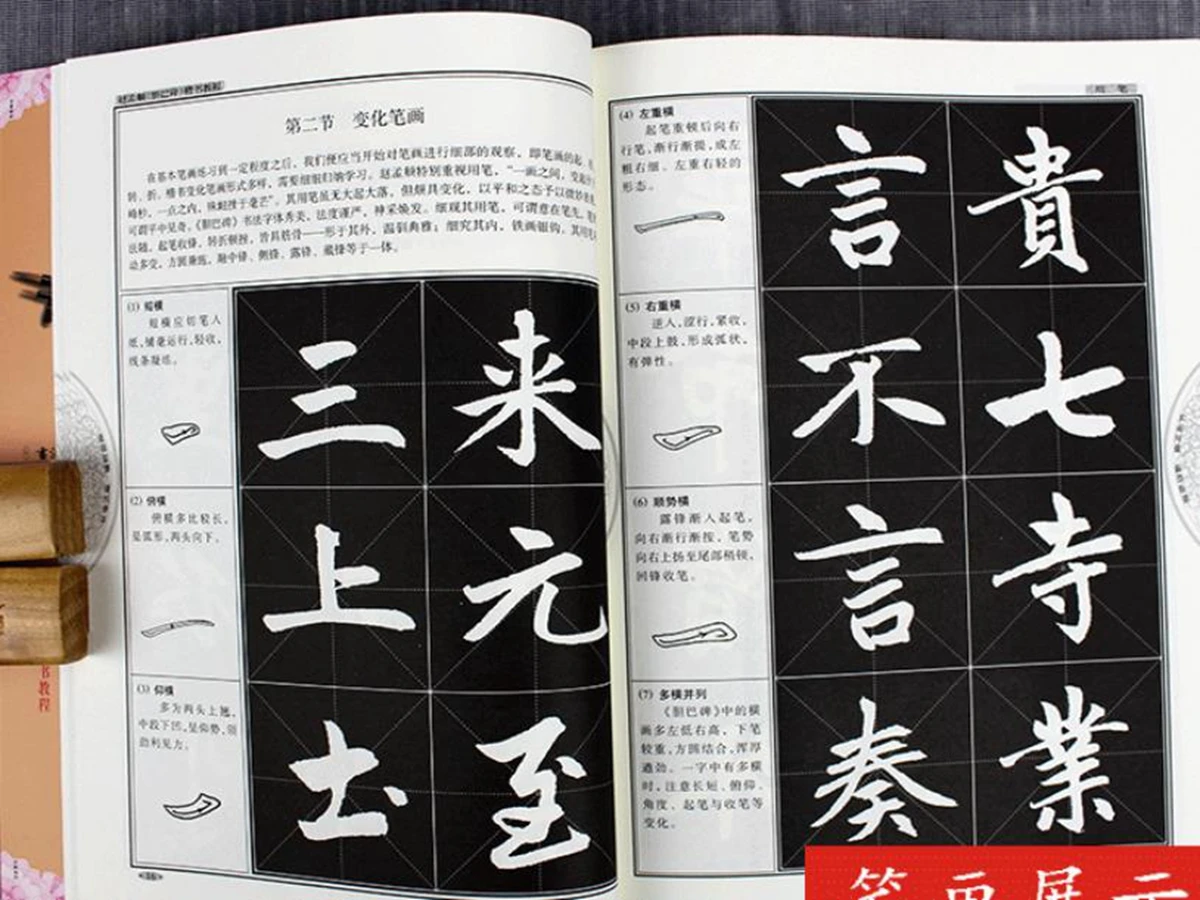 赵孟頫《胆巴碑》楷书教程
第二节 变化笔画
在基本笔画练习到一定程度之后，我们便应当开始对笔画进行细部的观察，即笔画的起、
转、折。楷书变化笔画形式多样，需要细细归纳学习。赵孟頫特别重视用笔，“一画之间，变起
峰杪，一点之内，殊衄挫于毫芒”。其用笔虽无大起大落，但颇具变化，以平和之态予以微妙
可谓平中见奇。《胆巴碑》书法字体秀美，法度谨严，神采焕发。细观其用笔，可谓意在笔先，
法随，起笔收锋，转折顿挫，皆具筋骨——形于其外，温润典雅；细究其内，铁画银钩，其用笔
动多变，方圆兼施，融中锋、侧锋、露锋、藏锋等于一体。
(1) 短横
短横应切笔入
纸，铺毫运行，轻收，
线条凝练。
三 来
(2) 俯横
俯横多比较长，
呈弧形，两头向下。
上 元
(3) 仰横
多为两头上翘，
中段下凹，呈仰势，须
劲利见力。
土 至
用 笔
(4) 左重横
起笔重顿后向右
行笔，渐行渐提，成左
粗右细、左重右轻的
形态。
言 貴
(5) 右重横
逆入，涩行，紧收，
中段上鼓，形成弧状，
有弹性。
不 七
(6) 顺势横
露锋渐入起笔，
向右渐行渐按，笔势
向右上扬至尾部稍顿，
回锋收笔。
言 寺
(7) 多横并列
《胆巴碑》中的横
画多左低右高，下笔
较重，方圆结合，浑厚
遒劲。一字中有多横
时，注意长短、俯仰、
角度、起笔与收笔等
变化。
奏 業
书教程
笔画展示